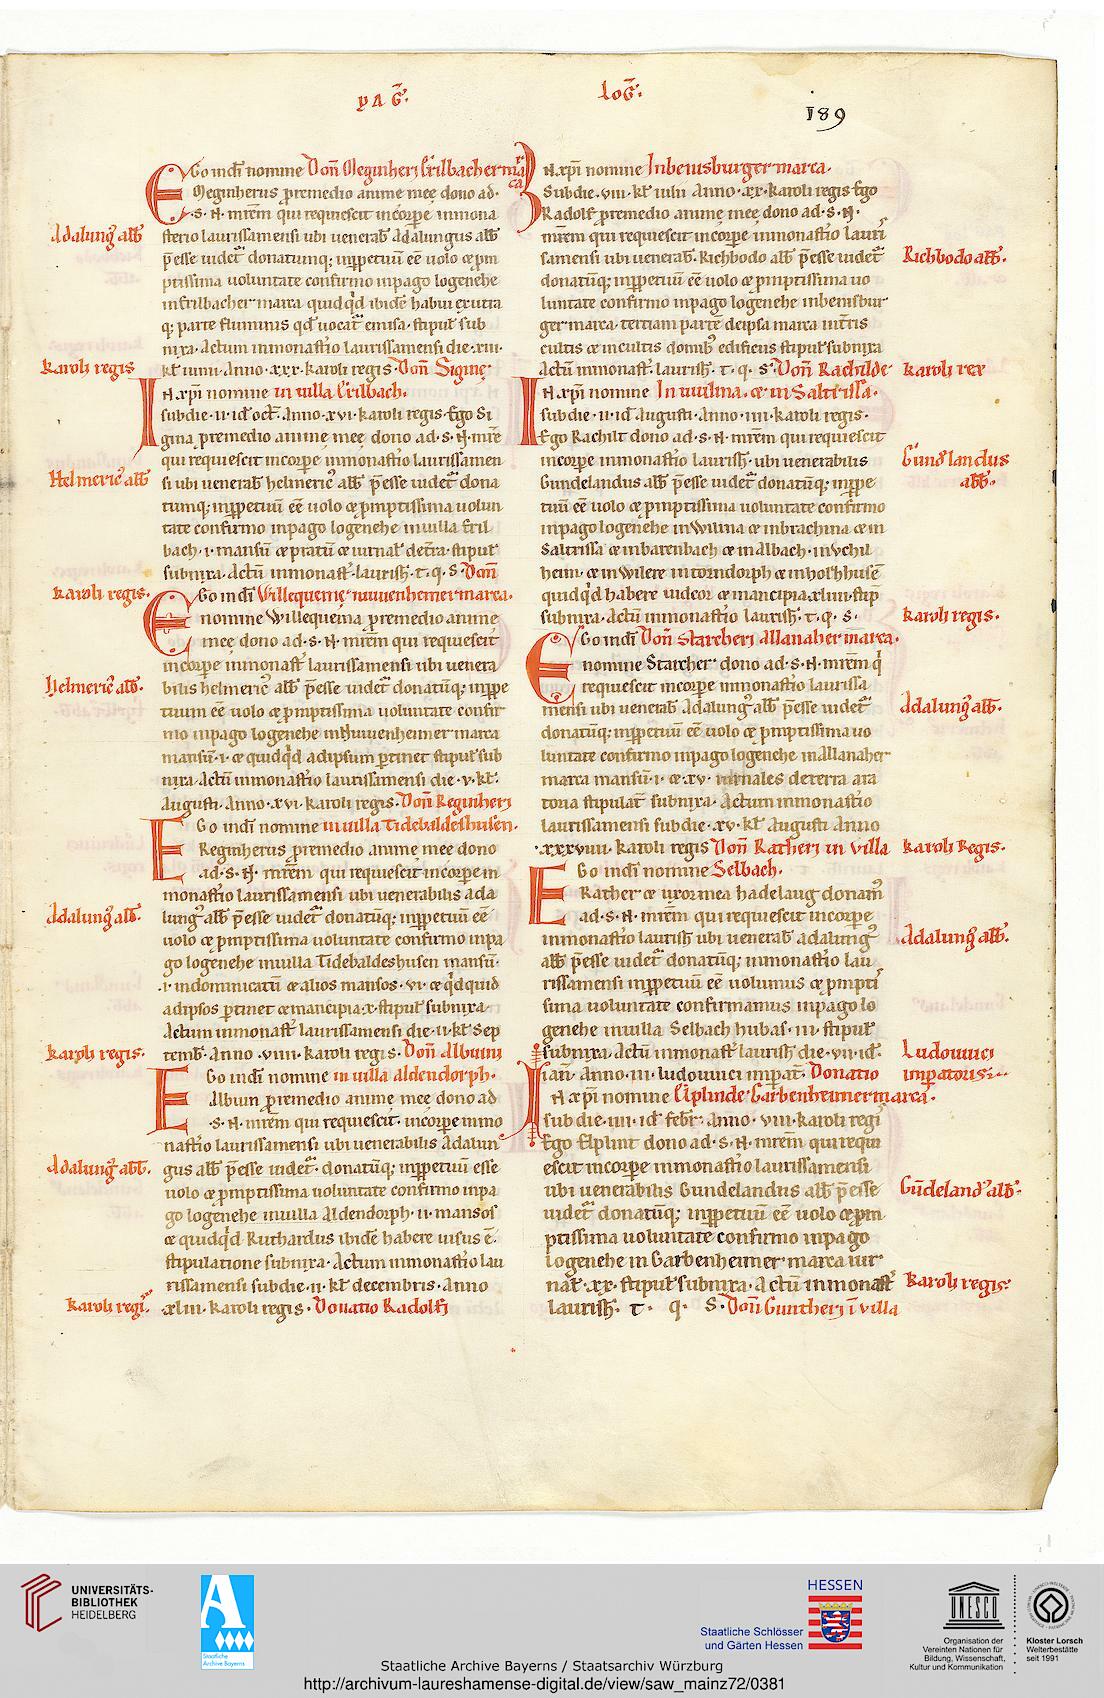 pag̅. log̅.
189
Ego indī nomine Don̅ Meginheri Erilbacher marca
Meginherus ꝑremedio anime meę dono ad·
·S·N· mr̅em qui requiescit incorꝑe inmona
Adalung᷒ abb̅
sterio laurissamensi ubi uenerab̅ Adalungus abb̅
p̅esse uidet᷒ donatumq; inꝑpetuū eē uolo & pm
ptissima uoluntate confirmo inpago logenehe
inErilbacher marca quidq̇d ibidē habui exutra
q; parte fluminis qd̅ uocat᷒ emisa· stipul̅ sub
nixa· Actum inmonast̅io laurissamensi die·xiii·
karoli regis
kl̅ iunii· Anno·xxx·karoli regis· Don̅ Siginę
IN xp̅i nomine in uilla Erilbach·
subdie·ii·id᷒ oct̅· Anno·xvi·karoli regis· Ego Si
gina ꝑremedio anime meę dono ad·S·N·mr̅e
qui requiescit incorꝑe inmonast̅io laurissamen
Helmeric᷒ abb̅
si ubi uenerab̅ helmeric᷒ abb̅ p̅esse uidet᷒ dona
tumq; inꝑpetuū eē uolo & pmptissima uolun
tate confirmo inpago logenehe inuilla Eril
bach·i·mansū & pratū & iurnal̅ det̅ra· stipul̅
subnixa· Actū inmonast̅·laurish̅·t·q·S· Don̅
karoli regis·
Ego indī Willequemę·nuuenheimer marca·
nomine Willequema ꝑremedio anime
meę dono ad·S·N·mr̅em qui requiescit
incorꝑe inmonast̅ laurissamensi ubi uenera
Helmeric᷒ abb̅·
bilis helmeric᷒ abb̅ p̅esse uidet᷒ donatūq; inꝑpe
tuum eē uolo & pmptissima uoluntate confir
mo inpago logenehe inNiuuenheimer marca
mansū·i·& quidq̇d adipsum ꝑtinet stipul̅ sub
nixa· Actū inmonast̅io laurissamensi die·v·kl̅·
augusti· Anno·xvi·karoli regis· Don̅ Reginheri
Ego indī nomine inuilla Tidebaldeshusen·
Reginherus ꝑremedio anime meę dono
ad·S·N·mr̅em qui requiescit incorꝑe in
monast̅io laurissamensi ubi uenerabilis ada
Adalung᷒ abb̅·
lung᷒ abb̅ p̅esse uidet᷒ donatūq; inꝑpetuū eē
uolo & pmptissima uoluntate confirmo inpa
go logenehe inuilla Tidebaldeshusen mansū·
·i·indominicatū & alios mansos·vi·& q̇dquid
adipsos ꝑtinet & mancipia·x·stipul̅ subnixa·
Actum inmonast̅ laurissamensi die·ii·kl̅ Sep
karoli regis·
temb̅· Anno·viiii·karoli regis· Don̅ Albuuini
Ego indī nomine in uilla aldendorph·
Albuin ꝑremedio anime meę dono ad
·S·N·mr̅em qui requiescit·incorꝑe inmo
nast̅io laurissamensi ubi uenerabilis Adalun
Adalung᷒ abb̅·
gus abb̅ p̅esse uidet᷒· donatūq; inꝑpetuū esse
uolo & pmptissima uoluntate confirmo inpa
go logenehe inuilla Aldendorph·ii·mansos
& quidq̇d Ruthardus ibidē habere uisus ē·
stipulatione subnixa· Actum inmonast̅io lau
rissamensi subdie·ii·kl̅ decembris· Anno
karoli regi᷒·
xliii·karoli regis· Donatio Radolfi
IN xp̅i nomine Inbenisburger marca·
Subdie·viii·kl̅ iulii Anno·xx·karoli regis Ego
Radolf ꝑremedio anime meę dono ad·S·N·
mr̅em qui requiescit incorꝑe inmonast̅io lauri
Richbodo abb̅·
samensi ubi uenerab̅·Richbodo abb̅ p̅esse uidet᷒
donatūq; inꝑpetuū eē uolo & pmptissima uo
luntate confirmo inpago logenehe inbenisbur
ger marca· tertiam partē deipsa marca int̅ris
cultis & incultis domib᷒ edificiis stipul̅ subnixa
karoli rex
Actū inmonast̅·laurish̅·t·q·S· Don̅ Rachilde
IN xp̅i nomine In uuilina·& in Saltrissa·
subdie·ii·id᷒ Augusti· Anno·iiii·karoli regis·
Ego Rachilt dono ad·S·N·mr̅em qui requiescit
Gundelandus
incorꝑe inmonast̅io laurish̅· ubi uenerabilis
abb̅·
Gundelandus abb̅ p̅esse uidet᷒ donatūq; inꝑpe
tuū eē uolo & pmptissima uoluntate confirmo
inpago logenehe inWilina & inbrachina & in
Saltrissa & inbarenbach & inAlbach·inVchil
heim·& inWilere in torndorph & inholzhusē
quidq̇d habere uideor & mancipia·xl·stip̅
karoli regis·
subnixa· Actū inmonast̅io laurish̅·t·q·S·
Ego indī Don̅ Starcheri Allanaher marca·
nomine Starcher᷒ dono ad·S·N·mr̅em q̇
requiescit incorꝑe inmonast̅io laurissa
Adalung᷒ abb̅·
mensi ubi uenerab̅ Adalung᷒ abb̅ p̅esse uidet᷒
donatūq; inꝑpetuū eē uolo & pmptissima uo
luntate confirmo inpago logenehe inAllanaher
marca mansū·i·& xv·iurnales deterra ara
toria stipulat̅ subnixa· Actum inmonast̅io
laurissamensi subdie·xv·kl̅ Augusti Anno
karoli Regis·
·xxxviiii·karoli regis Don̅ Ratheri in villa
Ego indī nomine Selbach·
Rather & uxor mea hadelaug donam᷒
ad·S·N·mr̅em qui requiescit incorꝑe
Adalung᷒ abb̅·
inmonast̅io laurish̅ ubi uenerab̅ adalung᷒
abb̅ p̅esse uidet᷒ donatūq; inmonast̅io lau
rissamensi inꝑpetuū eē uolumus & pmpti
sima uoluntate confirmamus inpago lo
genehe inuilla Selbach hubas·iii·stipul̅
Ludouuici
subnixa· Actū inmonast̅ laurish̅ die·vii·id᷒·
imꝑatoris·
ian̅· Anno·iii·ludouuici imꝑat̅· Donatio
IN xp̅i nomine Elplinde·Garbenheimer marca·
subdie·iiii·id᷒ febr̅· anno·viii·karoli regi᷒
Ego Elplint dono ad·S·N·mr̅em qui requi
escit incorꝑe inmonast̅io laurissamensi
Gūdeland᷒ abb̅·
ubi uenerabilis Gundelandus abb̅ p̅esse
uidet᷒ donatūq; inꝑpetuū eē uolo & pm
ptissima uoluntate confirmo inpago
logenehe in Garbenheimer marca iur
karoli regis·
nal̅·xx·stipul̅ subnixa· Actū inmonast̅
laurish̅·t·q·S· Don̅ Guntheri ī villa
UNIVERSITÄTS-
BIBLIOTHEK
HEIDELBERG
Staatliche
Archive Bayerns
HESSEN
Staatliche Schlösser
und Gärten Hessen
UNESCO
Organisation der
Vereinten Nationen für
Bildung, Wissenschaft,
Kultur und Kommunikation
Kloster Lorsch
Welterbestätte
seit 1991
Staatliche Archive Bayerns / Staatsarchiv Würzburg
http://archivum-laureshamense-digital.de/view/saw_mainz72/0381